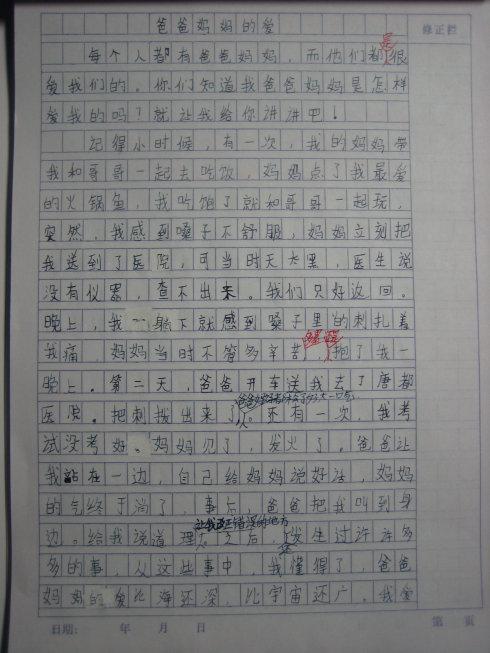 爸爸妈妈的爱
修正栏
每个人都有爸爸妈妈，而他们都是很
爱我们的。你们知道我爸爸妈妈是怎样
爱我的吗？就让我给你讲讲吧！
记得小时候，有一次，我的妈妈带
我和哥哥一起去吃饭，妈妈点了我最爱
的火锅鱼，我吃饱了就和哥哥一起玩，
突然，我感到嗓子不舒服，妈妈立刻把
我送到了医院，可当时天太黑，医生说
没有仪器，查不出来。我们只好返回。
晚上，我一躺下就感到嗓子里的刺扎着
我痛，妈妈当时不管多辛苦，抱了我一
晚上。第二天，爸爸开车送我去了唐都
医院。把刺拔出来了。还有一次，我考
试没考好。妈妈见了，发火了。爸爸让
我站在一边，自己给妈妈说好话，妈妈
的气终于消了，事后，爸爸把我叫到身
让我改正错误的地方
边。给我说道理。之后，发生过许许多
多的事，从这些事中，我懂得了，爸爸
妈妈的爱比海还深，比宇宙还广。我爱
日期： 年 月 日
第 页